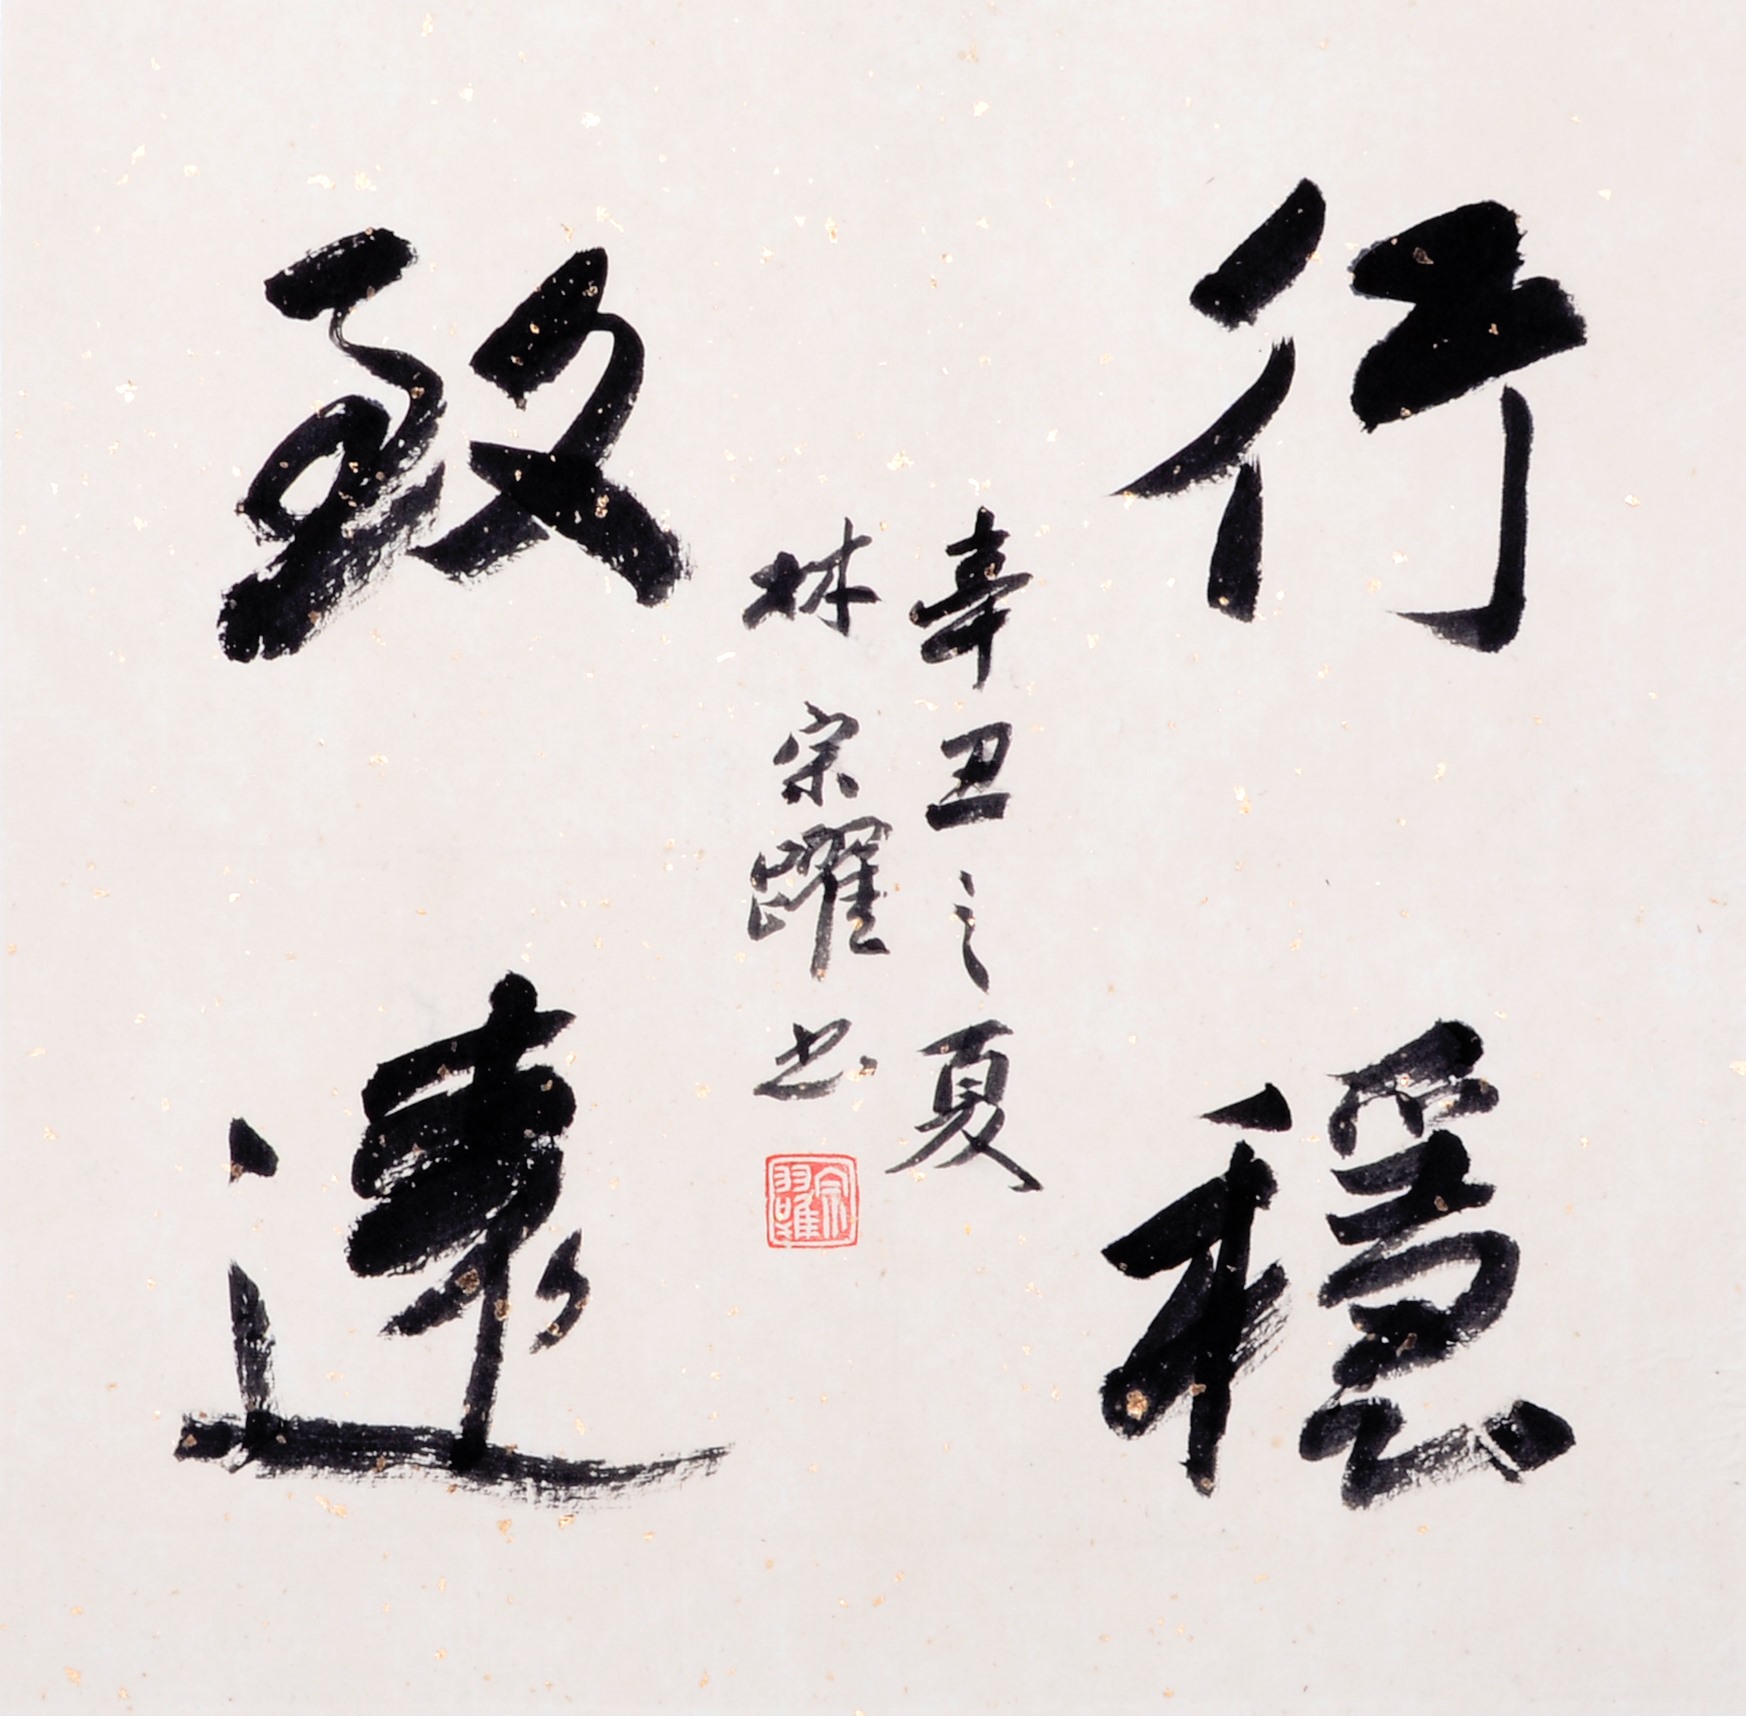 行穩
致遠
辛丑之夏
林宗躍书
宗躍